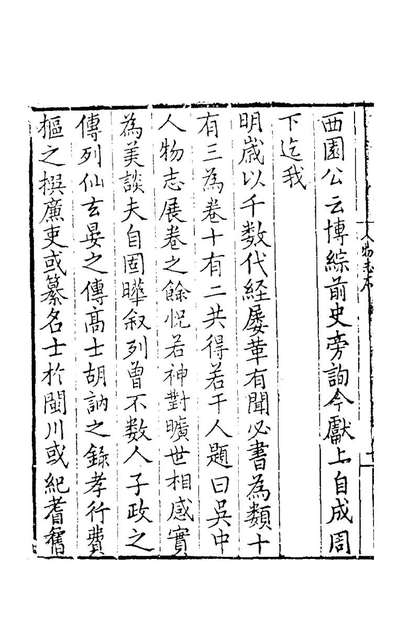 西園公云博綜前史旁詢今獻上自成周
下迄我
明歲以千數代經屢革有聞必書為類十
有三為卷十有二共得若干人題曰吳中
人物志展卷之餘怳若神對曠世相感實
為美談夫自固曄叙列曾不数人子政之
傳列仙玄晏之傳高士胡訥之錄孝行費
樞之撰廉吏或纂名士於閩川或紀耆舊
人物志序